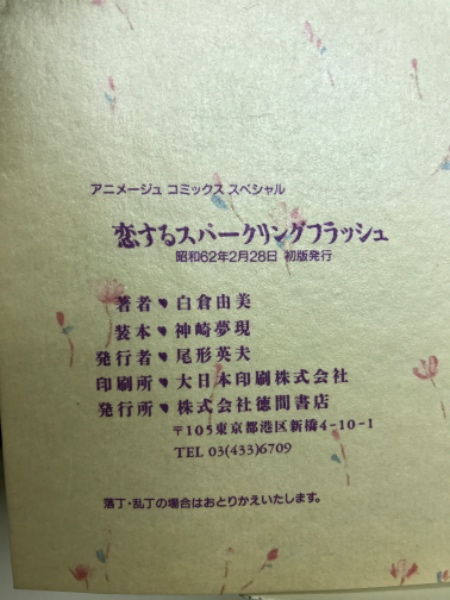 アニメージュ コミックス スペシャル
恋するスパークリングフラッシュ
昭和62年2月28日 初版発行
著者♥白倉由美
装本♥神崎夢現
発行者♥尾形英夫
印刷所♥大日本印刷株式会社
発行所♥株式会社徳間書店
〒105東京都港区新橋4-10-1
TEL 03(433)6709
落丁・乱丁の場合はおとりかえいたします。